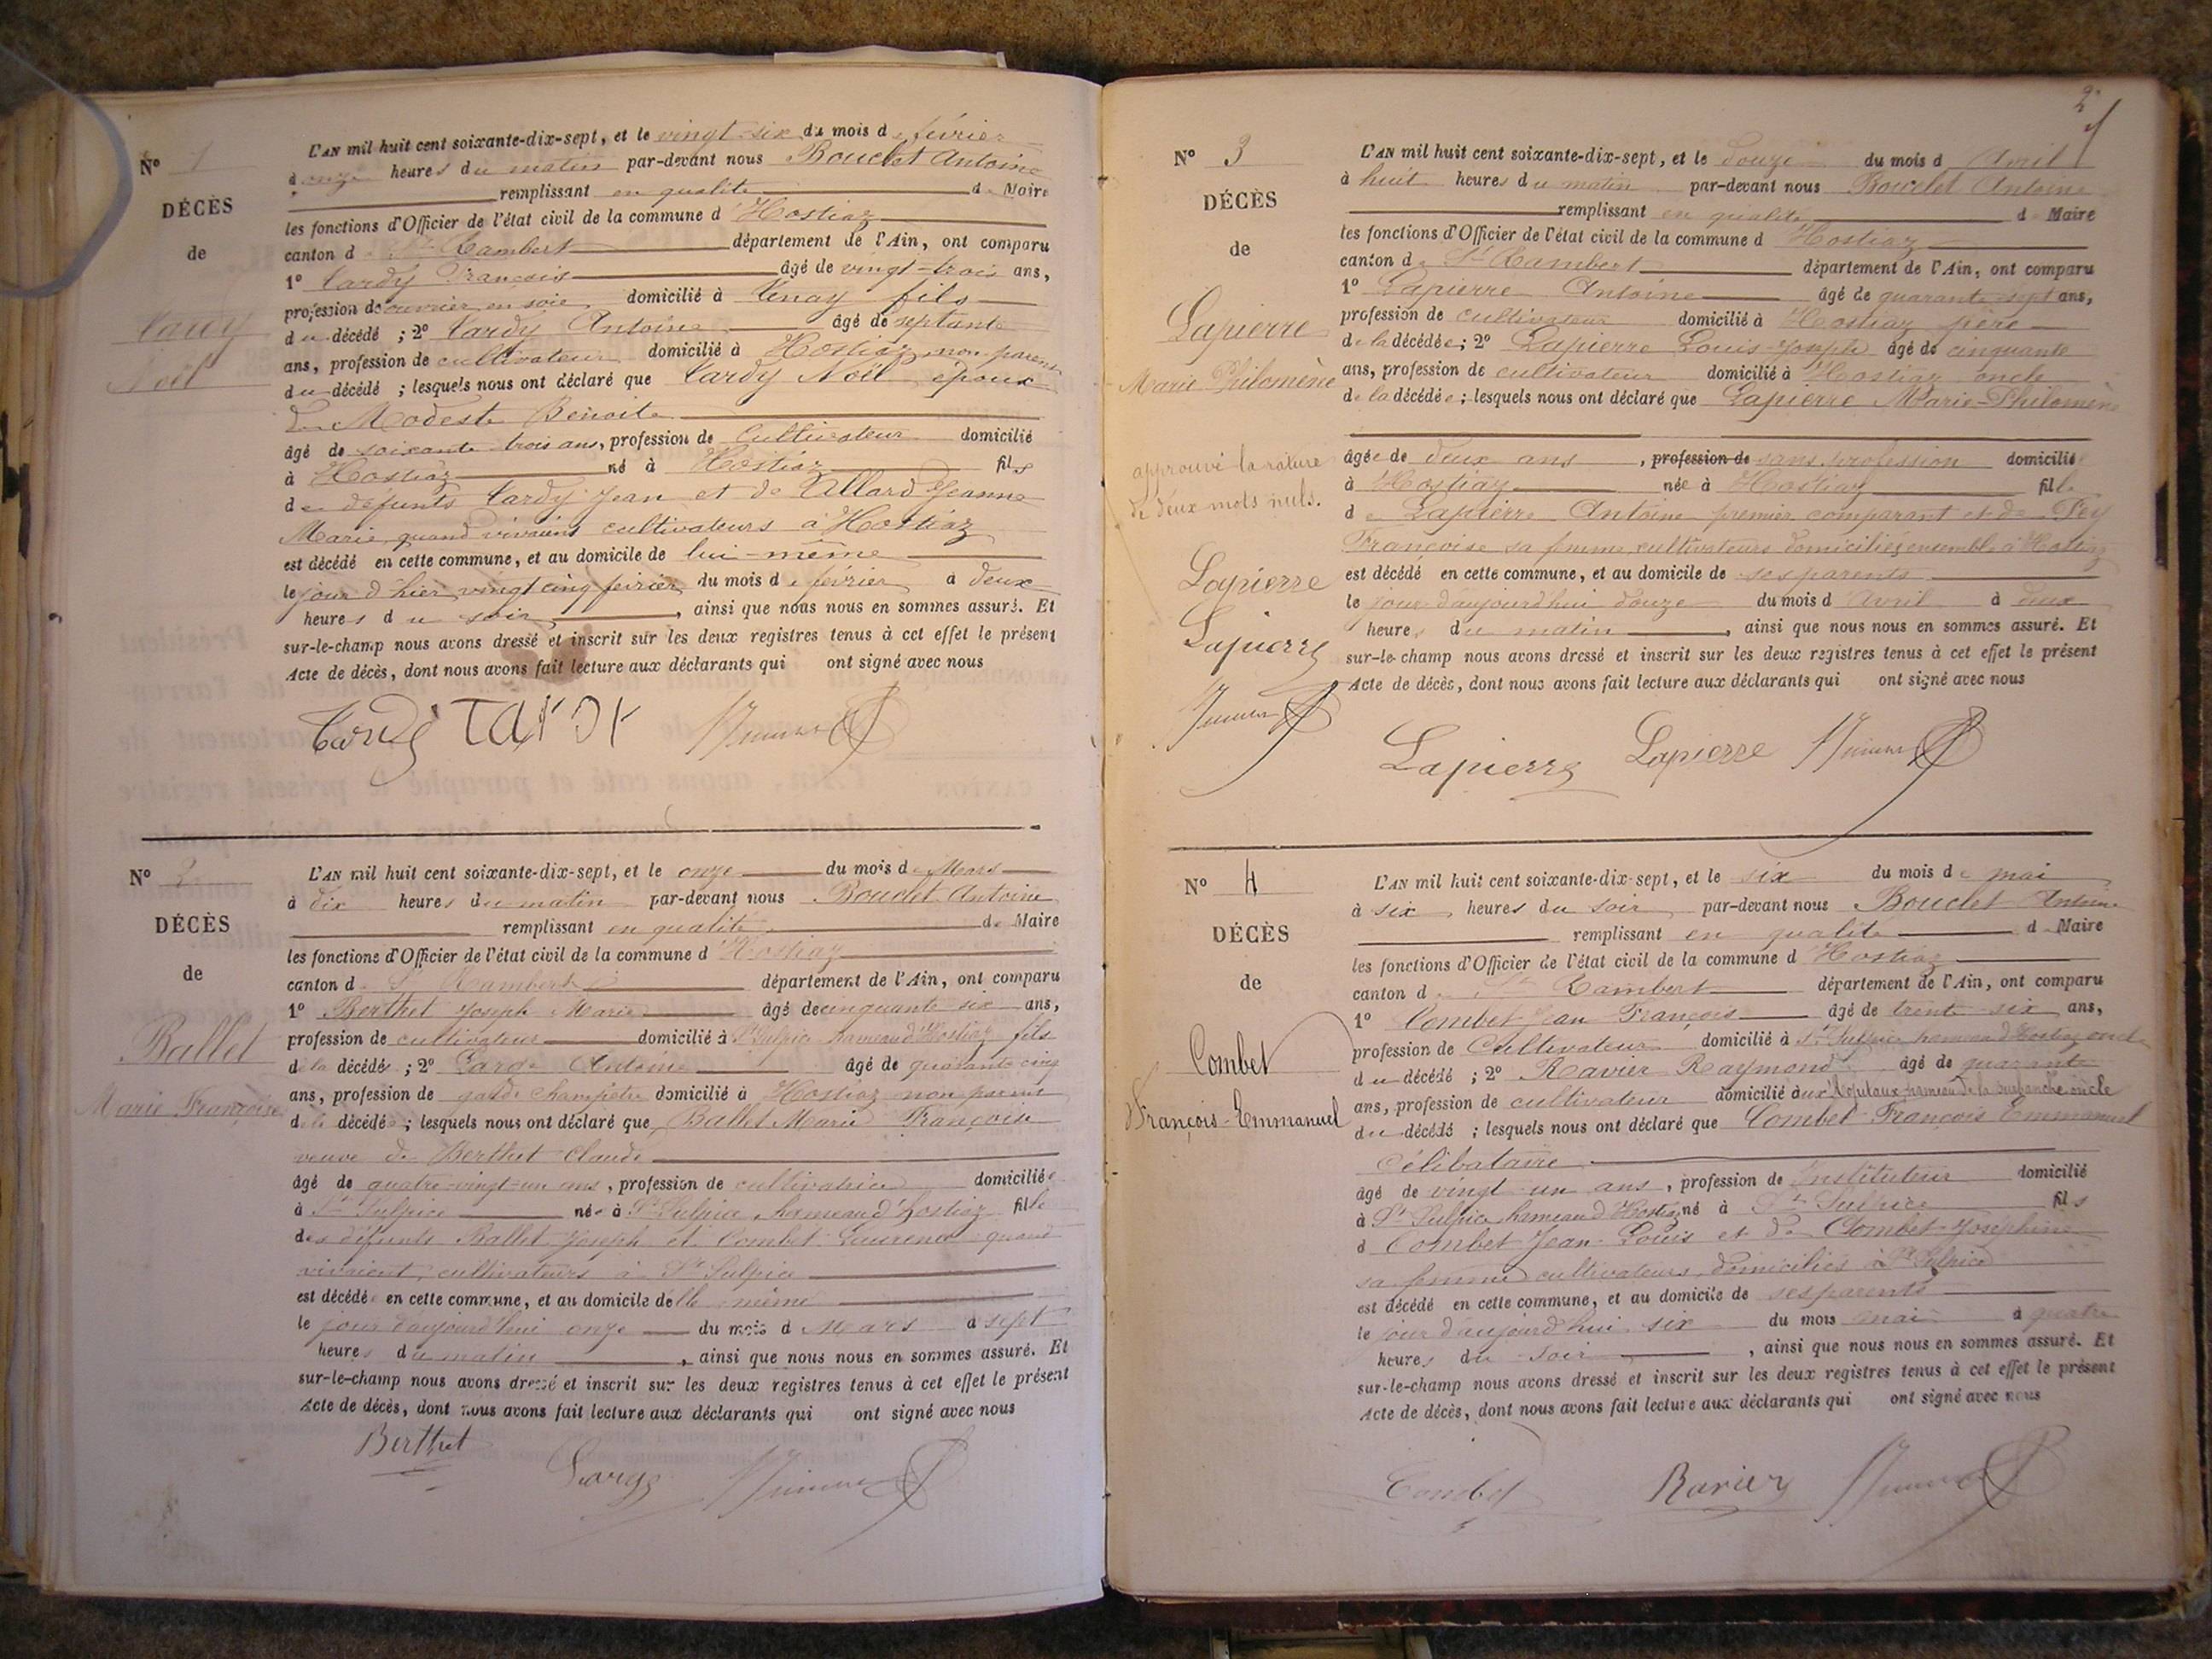 N° 1
DÉCÈS
de
Tardy
Noël
L'AN mil huit cent soixante-dix-sept, et le vingt-six du mois de février
à onze heures du matin par-devant nous Bouclet Antoine
remplissant en qualité de Maire
les fonctions d'Officier de l'état civil de la commune d'Hostiaz
canton de St Rambert département de l'Ain, ont comparu
1° Tardy François âgé de vingt-trois ans,
profession de ouvrier en soie domicilié à Tenay fils
du décédé ; 2° Tardy Antoine âgé de septante
ans, profession de cultivateur domicilié à Hostiaz non parent
du décédé ; lesquels nous ont déclaré que Tardy Noël époux
de Modeste Benoite
âgé de soixante trois ans, profession de Cultivateur domicilié
à Hostiaz né à Hostiaz fils
de défunts Tardy Jean et de Allard Jeanne
Marie quand vivaient cultivateurs à Hostiaz
est décédé en cette commune, et au domicile de lui-même
le jour d'hier vingt cinq février du mois de février à deux
heures du soir, ainsi que nous nous en sommes assuré. Et
sur-le-champ nous avons dressé et inscrit sur les deux registres tenus à cet effet le présent
Acte de décès, dont nous avons fait lecture aux déclarants qui ont signé avec nous
Tardy TARDY
N° 2
DÉCÈS
de
Ballet
Marie Françoise
L'AN mil huit cent soixante-dix-sept, et le onze du mois de Mars
à dix heures du matin par-devant nous Bouclet Antoine
remplissant en qualité de Maire
les fonctions d'Officier de l'état civil de la commune d'Hostiaz
canton de St Rambert département de l'Ain, ont comparu
1° Berthet Joseph Marie âgé de cinquante-six ans,
profession de cultivateur domicilié à St Sulpice hameau d'Hostiaz fils
de la décédé ; 2° Large Antoine âgé de quarante cinq
ans, profession de garde champêtre domicilié à Hostiaz non parent
de la décédée ; lesquels nous ont déclaré que Ballet Marie Françoise
veuve de Berthet Claude
âgé de quatre-vingt-un ans, profession de cultivatrice domiciliée
à St Sulpice née à St Sulpice, hameau d'hostiaz fille
des défunts Ballet Joseph et Combet Laurence quand
vivaient, cultivateurs à St Sulpice
est décédé en cette commune, et au domicile d'elle même
le jour d'aujourd'hui onze du mois d Mars à sept
heures du matin, ainsi que nous nous en sommes assuré. Et
sur-le-champ nous avons dressé et inscrit sur les deux registres tenus à cet effet le présent
Acte de décès, dont nous avons fait lecture aux déclarants qui ont signé avec nous
Berthet
Large
2
N° 3
DÉCÈS
de
Lapierre
Marie Philomène
approuvé la rature
de deux mots nuls.
Lapierre
Lapierre
L'AN mil huit cent soixante-dix-sept, et le douze du mois d Avril
à huit heures du matin par-devant nous Bouclet Antoine
remplissant en qualité d Maire
les fonctions d'Officier de l'état civil de la commune d Hostiaz
canton de St Rambert département de l'Ain, ont comparu
1° Lapierre Antoine âgé de quarante sept ans,
profession de cultivateur domicilié à Hostiaz père
de la décédée ; 2° Lapierre Louis-Joseph âgé de cinquante
ans, profession de cultivateur domicilié à Hostiaz oncle
de la décédée ; lesquels nous ont déclaré que Lapierre Marie-Philomène
âgée de deux ans, profession de sans profession domicilié
à Hostiaz née à Hostiaz fille
de Lapierre Antoine premier comparant et de Pey
Françoise sa femme cultivateurs domiciliés ensemble à Hostiaz
est décédé en cette commune, et au domicile de ses parents
le jour d'aujourd'hui douze du mois d Avril à deux
heure du matin, ainsi que nous nous en sommes assuré. Et
sur-le-champ nous avons dressé et inscrit sur les deux registres tenus à cet effet le présent
Acte de décès, dont nous avons fait lecture aux déclarants qui ont signé avec nous
Lapierre Lapierre
N° 4
DÉCÈS
de
Combet
François-Emmanuel
L'AN mil huit cent soixante-dix-sept, et le six du mois de mai
à six heures du soir par-devant nous Bouclet Antoine
remplissant en qualité d Maire
les fonctions d'Officier de l'état civil de la commune d'Hostiaz
canton d St Rambert département de l'Ain, ont comparu
1° Combet Jean François âgé de trente-six ans,
profession de Cultivateur domicilié à St Sulpice hameau d'Hostiaz oncle
du décédé ; 2° Ravier Raymond âgé de quarante
ans, profession de cultivateur domicilié aux hameau de la oncle
du décédé ; lesquels nous ont déclaré que Combet François Emmanuel
Célibataire
âgé de vingt-un ans, profession de Instituteur domicilié
à St Sulpice hameau d'Hostiaz né à St Sulpice fils
d Combet Jean-Louis et de Combet Joséphine
sa femme cultivateurs, domiciliés à St Sulpice
est décédé en cette commune, et au domicile de ses parents
le jour d'aujourd'hui six du mois mai à quatre
heures du soir, ainsi que nous nous en sommes assuré. Et
sur-le-champ nous avons dressé et inscrit sur les deux registres tenus à cet effet le présent
Acte de décès, dont nous avons fait lecture aux déclarants qui ont signé avec nous
Combet Ravier